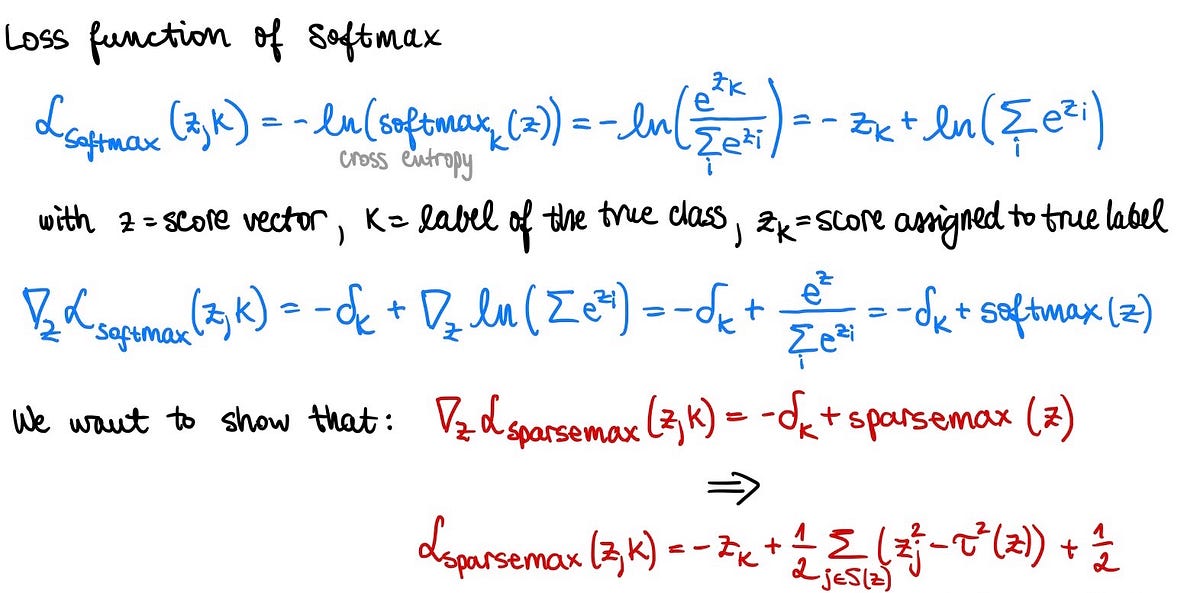 Loss function of Softmax
ℒ_softmax (z,k) = - ln(softmax_k(z)) = - ln(e^{z_k} / Σ_i e^{z_i}) = - z_k + ln(Σ_i e^{z_i})
cross entropy
with z = score vector, k = label of the true class, z_k = score assigned to true label
∇_z ℒ_softmax (z,k) = -δ_k + ∇_z ln(Σ e^{z_i}) = -δ_k + e^z / Σ_i e^{z_i} = -δ_k + softmax(z)
We want to show that: ∇_z ℒ_sparsemax (z,k) = -δ_k + sparsemax (z)
⇒
ℒ_sparsemax (z,k) = - z_k + 1/2 Σ_{j∈S(z)} (z_j^2 - τ^2(z)) + 1/2